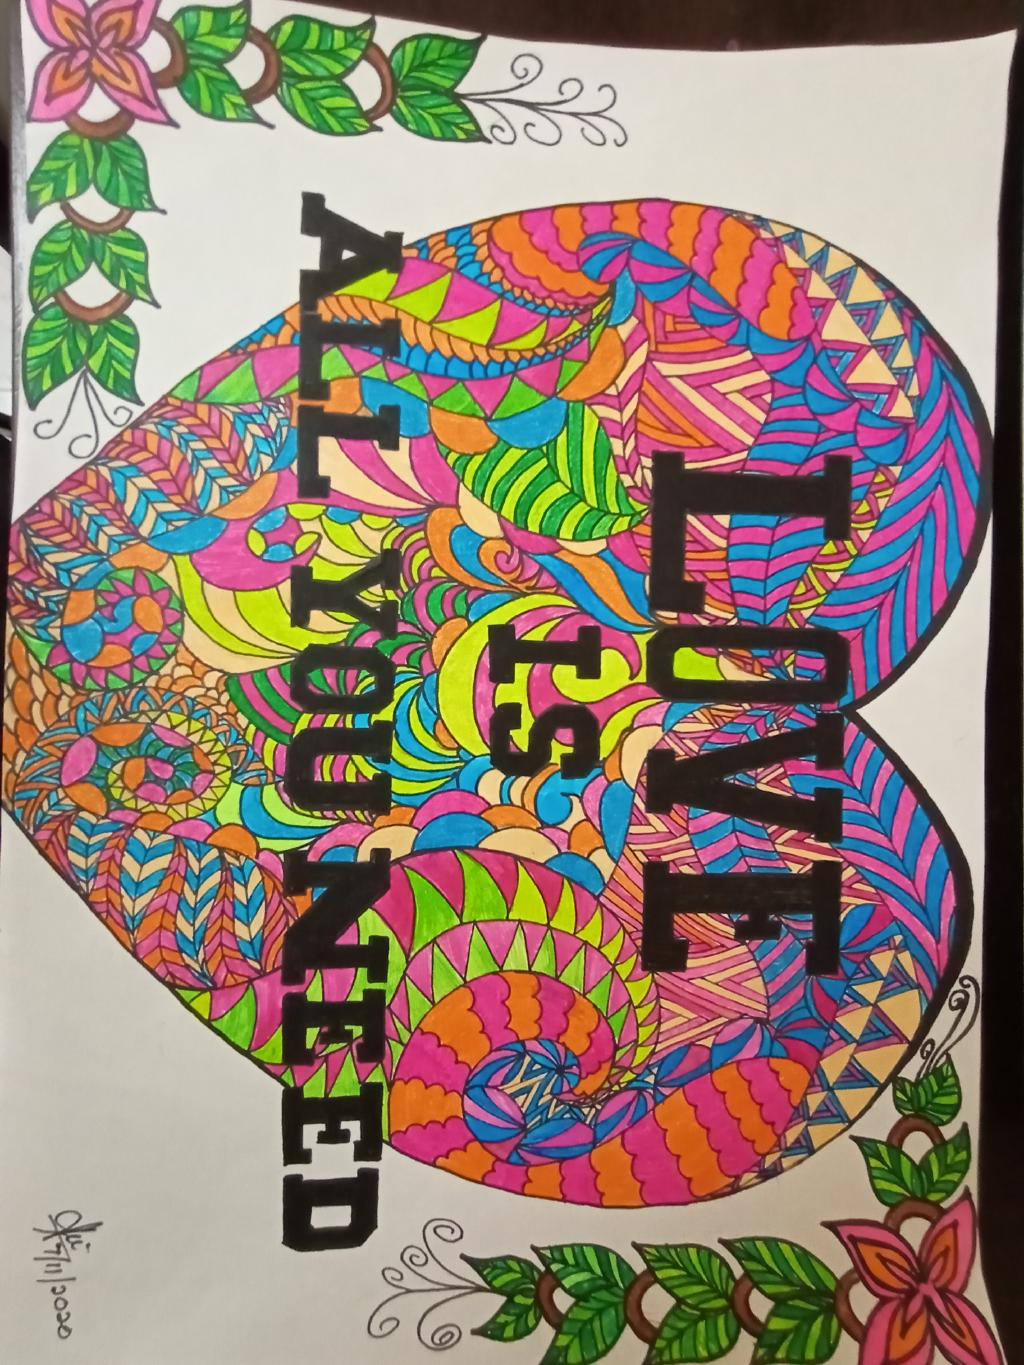 LOVE
IS
ALL YOU NEED
7/11/2020